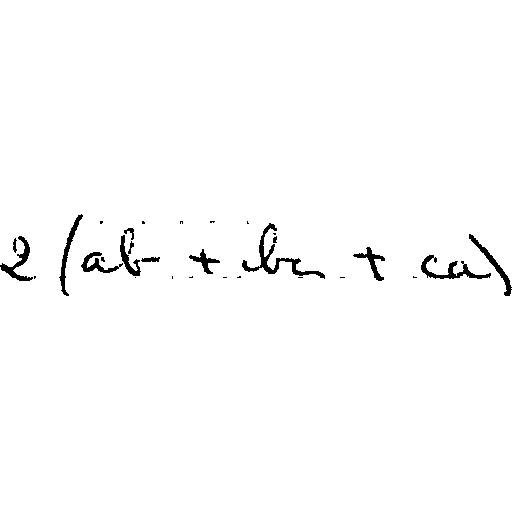 2 (ab + bc + ca)